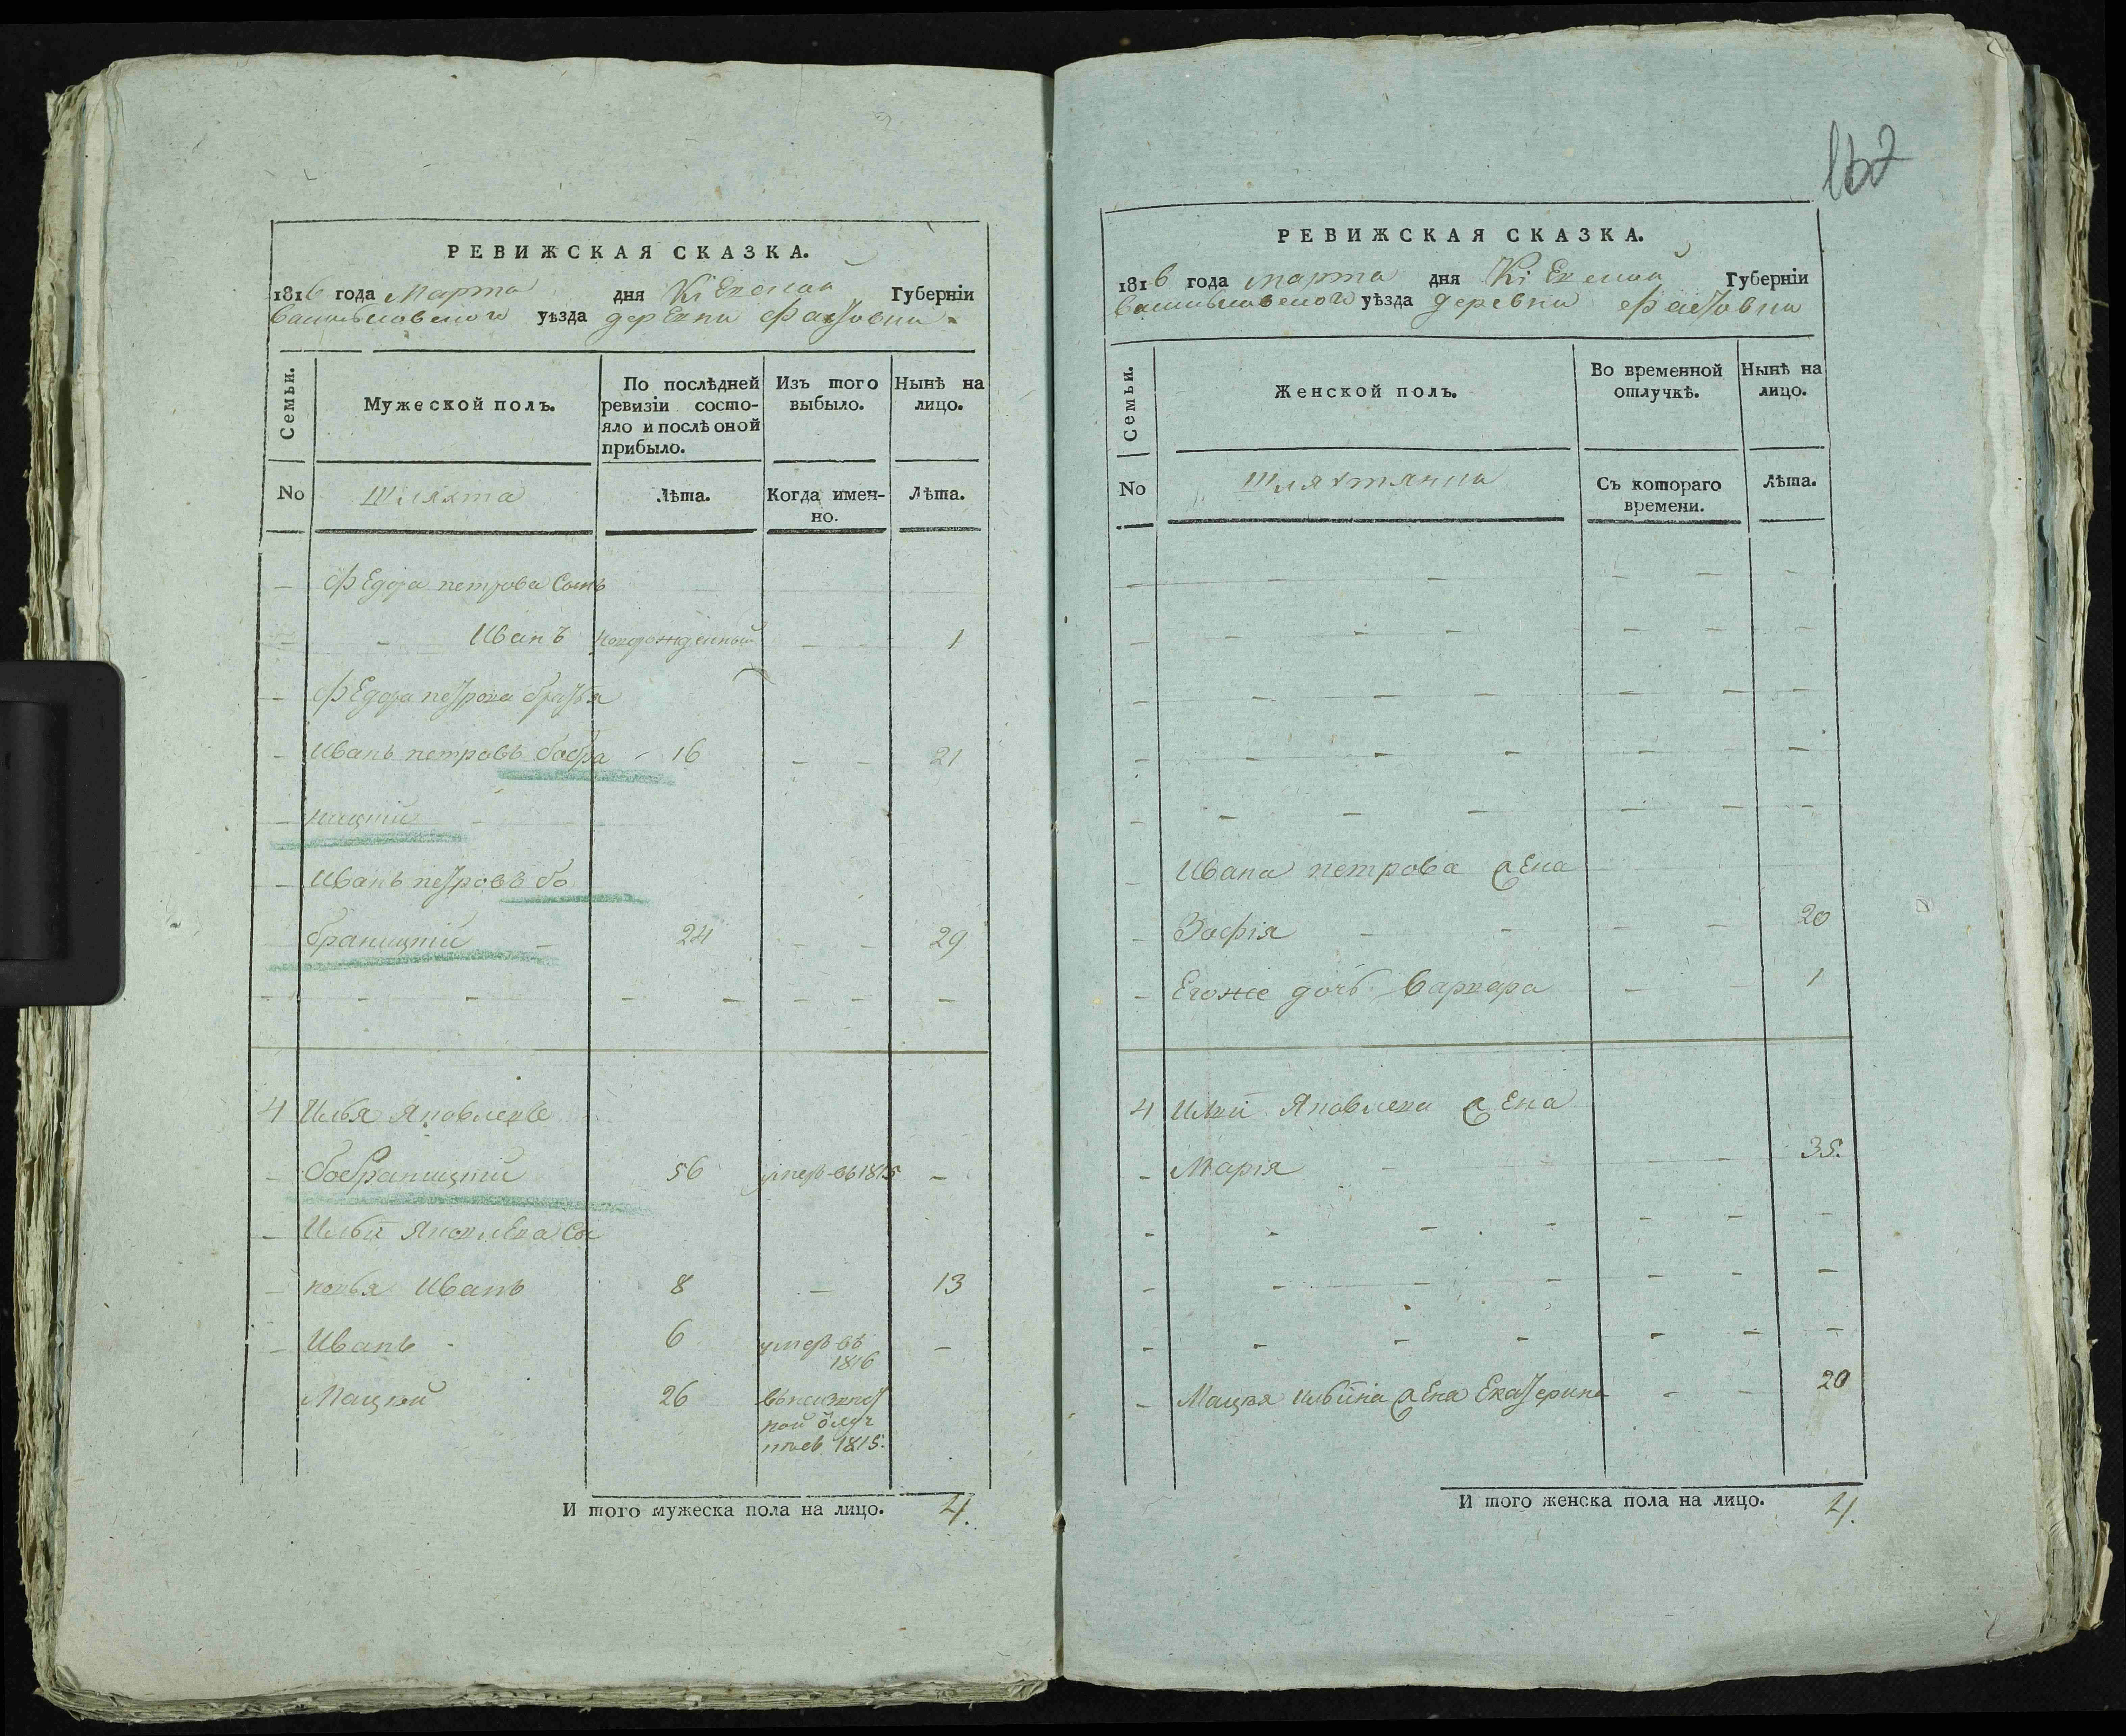 РЕВИЖСКАЯ СКАЗКА.
1816 года Марта дня Кіевской Губерніи
Васильковского уѣзда деревни Фастовки
Семьи.
Мужеской полъ.
По послѣдней ревизіи состо-
яло и послѣ оной прибыло.
Изъ того выбыло.
Нынѣ на лицо.
No Шляхта Лѣта. Когда имен-
но. Лѣта.
Федора петрова Сынъ
Иванъ новорожденный 1
Федора петрова братья
Иванъ петровъ бобра 16 21
ницкій
Иванъ петровъ бо
браницкій 24 29
4 Илья Яковлевъ
бобраницкій 56 умеръ въ 1815
Ильи Яковлева Сы
новья Иванъ 8 13
Иванъ 6 умеръ въ
1816
Мацкей 26
1815.
И того мужеска пола на лицо. 4.
162
РЕВИЖСКАЯ СКАЗКА.
1816 года марта дня Кіевской Губерніи
Васильковского уѣзда деревни Фастовки
Семьи.
Женской полъ.
Во временной отлучкѣ.
Нынѣ на лицо.
No Шляхтянки Съ котораго
времени. Лѣта.
Ивана петрова жена
Зофія 20
Егоже дочь Варвара 1
4 Ильи Яковлева жена
Марія 35.
Мацкея Ильина жена Екатерина 20
И того женска пола на лицо. 4.